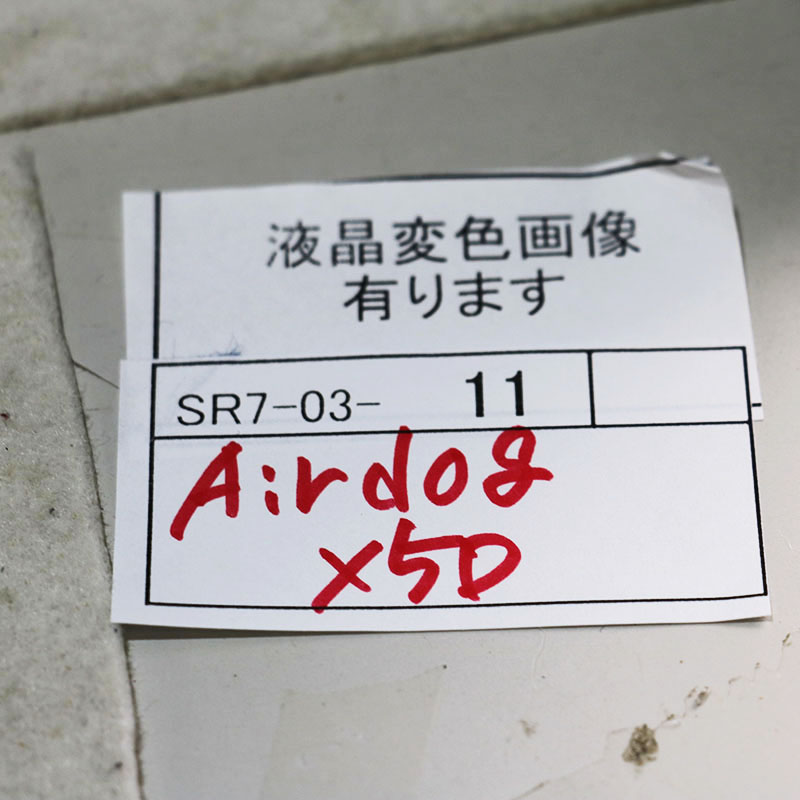 液晶変色画像
有ります
SR7-03- 11
Airdog
X5D